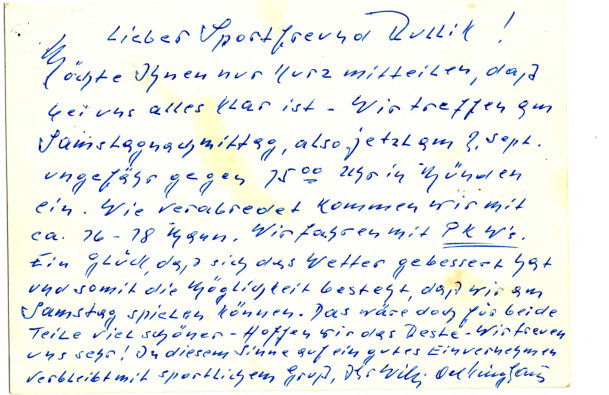 Lieber Sportfreund Rullik!
Möchte Ihnen nur kurz mitteilen, daß
bei uns alles klar ist - Wir treffen am
Samstagnachmittag, also jetzt am 2. Sept.
ungefähr gegen 15 00 Uhr in Münden
ein. Wie verabredet kommen wir mit
ca. 16-18 Mann. Wir fahren mit PKW's.
Ein Glück, daß sich das Wetter gebessert hat
und somit die Möglichkeit besteht, daß wir am
Samstag spielen können. Das wäre doch für beide
Teile viel schöner - Hoffen wir das Beste - Wir freuen
uns sehr! In diesem Sinne auf ein gutes Einvernehmen
verbleibt mit sportlichem Gruß, Ihr Willy